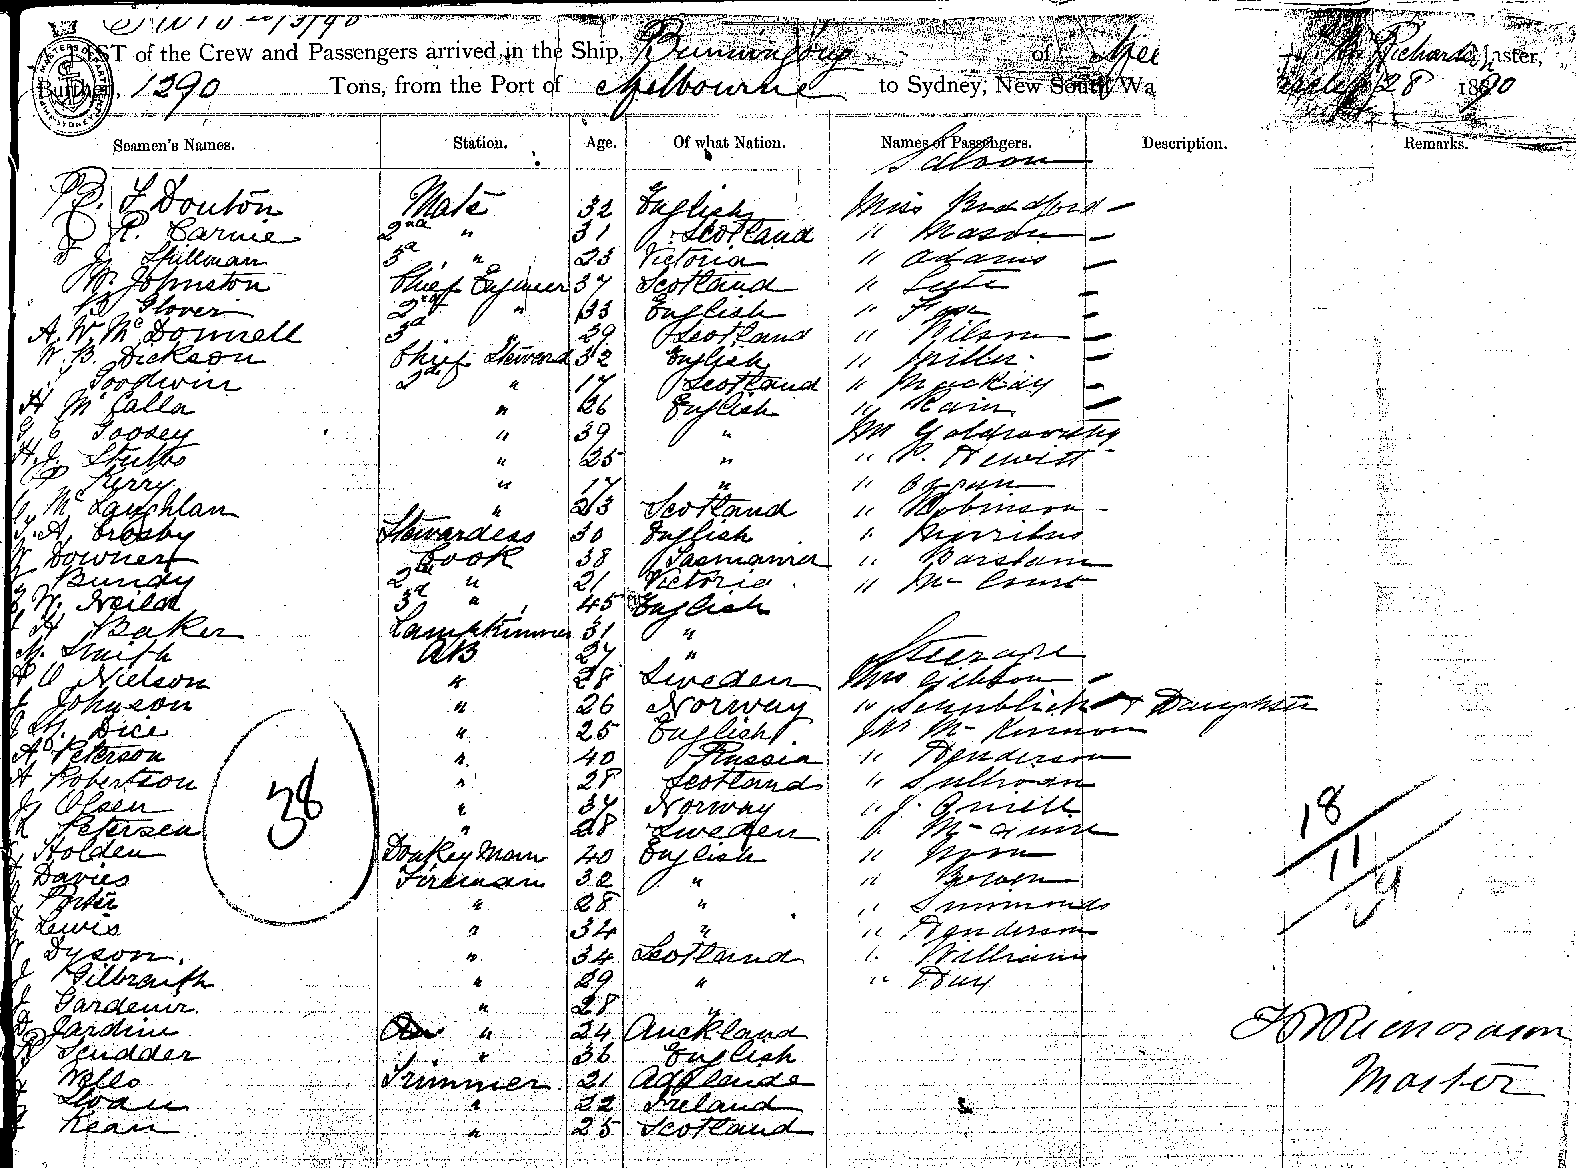 LIST of the Crew and Passengers arrived in the Ship, Burrumbeet of
Richardson Master,
Burthen, 1290 Tons, from the Port of Melbourne to Sydney, New South Wa
28 1890
Seamen's Names. Station. Age. Of what Nation. Names of Passengers. Description. Remarks.
Saloon
Douton Mate 32 English Miss Bradford -
R. Carnie 2nd " 31 Scotland " Mason -
J. Spillman 3d " 23 Victoria " Adams -
W. Johnston Chief Engineer 37 Scotland " -
Glover 2nd " 33 English " -
A. W. McDonnell 3d " 29 Scotland " Wilson -
W. B. Dickson Chief Steward 32 English " Miller -
Goodwin 2nd " 17 Scotland " Mackay -
H McCalla " 26 English " Rain -
G C Goosey " 39 " Mr Goldsworthy
H. J. Stubbs " 25 " " P. Hewitt -
P Perry " 17 " "
McLauchlan " 23 Scotland " Robinson -
A. Crosby Stewardess 30 English "
Downer Cook 38 Tasmania " Barsham
Bundy 2nd " 21 Victoria " McCourt
W. Neild 3d " 45 English
H Baker Lamptrimmer 31 "
M. Smith AB 27 " Steerage
O Nielson " 28 Sweden Mrs Gibson -
J Johnson " 26 Norway " & Daughter
Dice " 25 English Mr McKinnon
A Peterson " 40 Russia " Henderson
A Robertson " 28 Scotland " Sullivan
38
18
J Olsen " 37 Norway " J.
Petersen " 28 Sweden "
Holden Donkeyman 40 English "
11
Davies Fireman 32 " " Bowen
Porter " 28 " " Simmonds
9
Lewis " 34 " " Henderson
Dyson. " 34 Scotland " Williams
J Gilbraith " 29 " " Day
J Gardenir. " 28 "
D Jardine " 24 Auckland
Richardson
Scudder " 36 English
Wells Trimmer 21 Adelaide
Master
Sloan " 22 Ireland
Kean " 25 Scotland